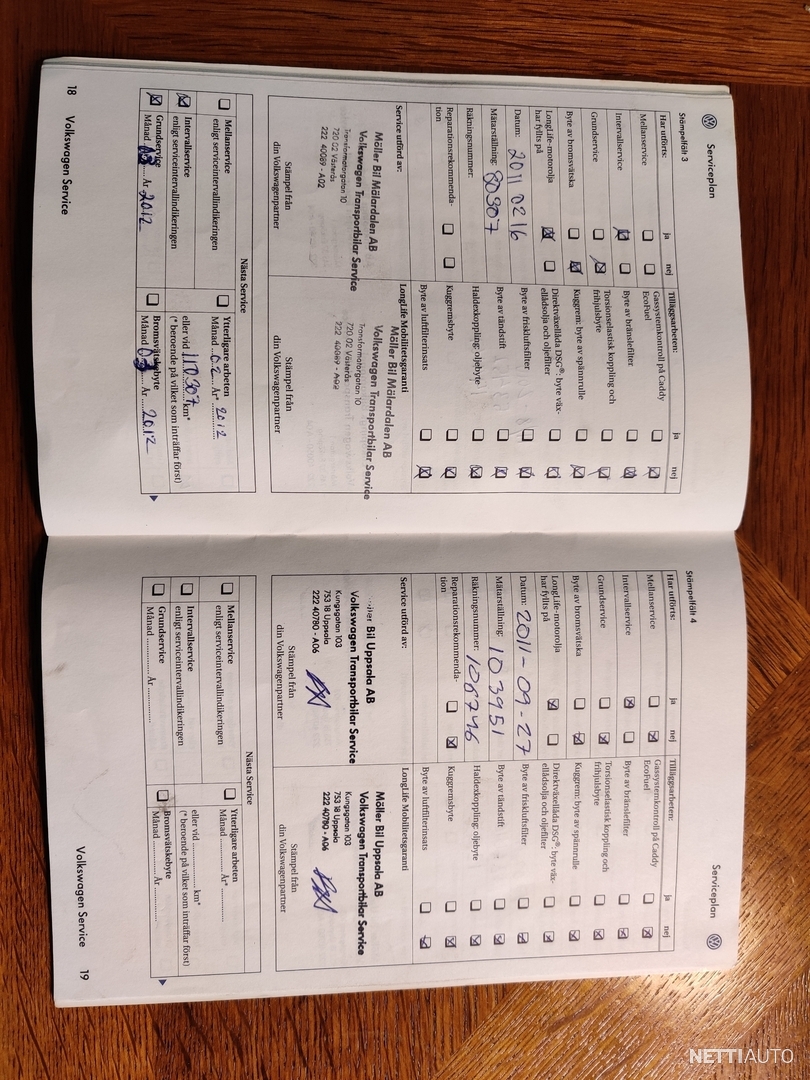 Serviceplan
Stämpelfält 3
Har utförts:
ja
nej
Mellanservice
Intervallservice
Grundservice
Byte av bromsvätska
LongLife-motorolja
har fyllts på
Datum: 2011 02 16
Mätarställning: 80307
Räkningsnummer:
Reparationsrekommenda-
tion
Tilläggsarbeten:
ja
nej
Gassystemkontroll på Caddy
EcoFuel
Byte av bränslefilter
Torsionselastisk koppling och
frihjulsbyte
Kuggrem: byte av spännrulle
Direktväxellåda DSG®: byte väx-
ellådsolja och oljefilter
Byte av friskluftsfilter
Byte av tändstift
Haldexkoppling: oljebyte
Kuggremsbyte
Byte av luftfilterinsats
Service utförd av:
Möller Bil Mälardalen AB
Volkswagen Transportbilar Service
Transformatorgatan 10
720 02 Västerås
222 40089 - A02
Stämpel från
din Volkswagenpartner
LongLife Mobilitetsgaranti
Möller Bil Mälardalen AB
Volkswagen Transportbilar Service
Transformatorgatan 10
720 02 Västerås
222 40089 - A02
Stämpel från
din Volkswagenpartner
Nästa Service
Mellanservice
enligt serviceintervallindikeringen
Intervallservice
enligt serviceintervallindikeringen
Grundservice
Månad År 2012
Ytterligare arbeten
Månad 02 År* 2012
eller vid 110307 km*
(* beroende på vilket som inträffar först)
Bromsvätskebyte
Månad År 2012
18 Volkswagen Service
Serviceplan
Stämpelfält 4
Har utförts:
ja
nej
Mellanservice
Intervallservice
Grundservice
Byte av bromsvätska
LongLife-motorolja
har fyllts på
Datum: 2011-09-27
Mätarställning: 103951
Räkningsnummer: 108746
Reparationsrekommenda-
tion
Tilläggsarbeten:
ja
nej
Gassystemkontroll på Caddy
EcoFuel
Byte av bränslefilter
Torsionselastisk koppling och
frihjulsbyte
Kuggrem: byte av spännrulle
Direktväxellåda DSG®: byte väx-
ellådsolja och oljefilter
Byte av friskluftsfilter
Byte av tändstift
Haldexkoppling: oljebyte
Kuggremsbyte
Byte av luftfilterinsats
Service utförd av:
Bil Uppsala AB
Volkswagen Transportbilar Service
Kungsgatan 103
753 18 Uppsala
222 40780 - A06
Stämpel från
din Volkswagenpartner
LongLife Mobilitetsgaranti
Möller Bil Uppsala AB
Volkswagen Transportbilar Service
Kungsgatan 103
753 18 Uppsala
222 40780 - A06
Stämpel från
din Volkswagenpartner
Nästa Service
Mellanservice
enligt serviceintervallindikeringen
Intervallservice
enligt serviceintervallindikeringen
Grundservice
Månad År
Ytterligare arbeten
Månad År*
eller vid km*
(* beroende på vilket som inträffar först)
Bromsvätskebyte
Månad År
Volkswagen Service 19
NETTIAUTO